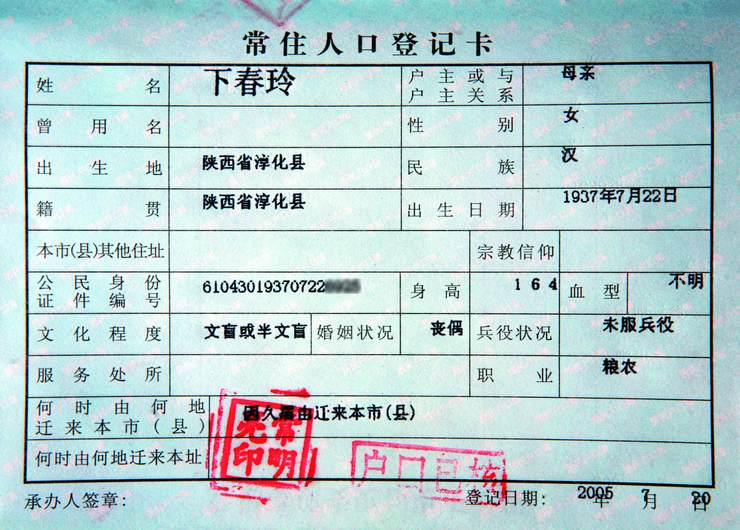 常住人口登记卡
姓名 下春玲 户主或与户主关系 母亲
曾用名 性别 女
出生地 陕西省淳化县 民族 汉
籍贯 陕西省淳化县 出生日期 1937年7月22日
本市(县)其他住址 宗教信仰
公民身份证件编号 61043019370722 身高 164 血型 不明
文化程度 文盲或半文盲 婚姻状况 丧偶 兵役状况 未服兵役
服务处所 职业 粮农
何时由何地迁来本市(县) 因久居由迁来本市(县)
何时由何地迁来本址
常明亮印
户口已
承办人签章: 登记日期: 2005年7月20日